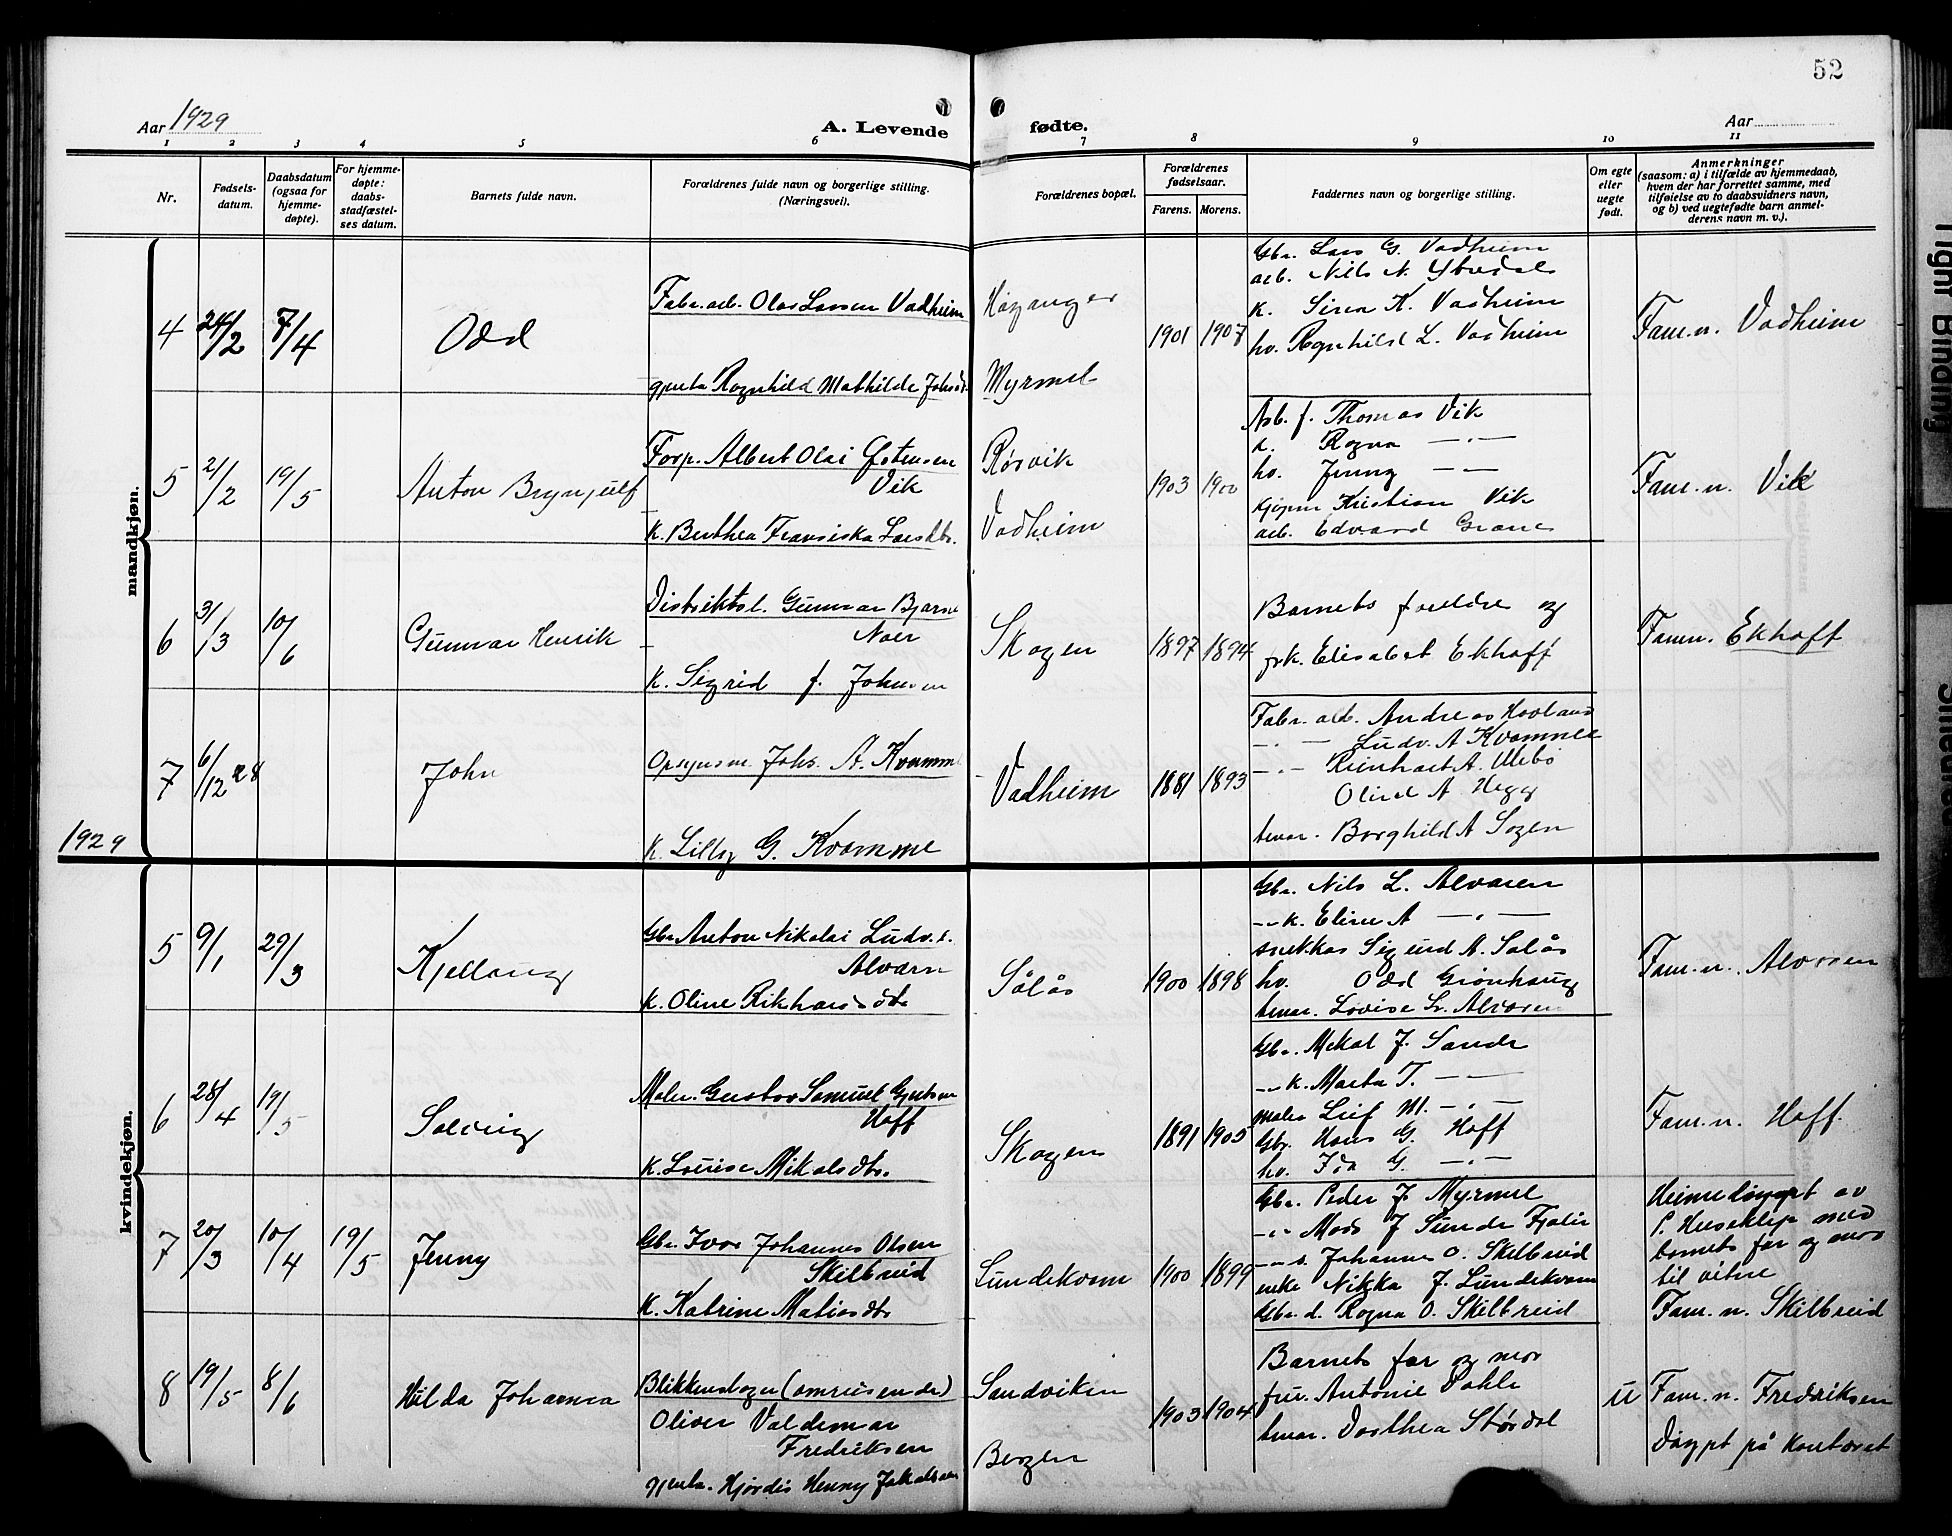 52
Aar 1929
A. Levende
fødte.
Aar
1 2 3 4 5 6 7 8 9 10 11
Nr.
Fødsels-
datum.
Daabsdatum
(ogsaa for
hjemme-
døpte).
For hjemme-
døpte:
daabs-
stadfæstel-
ses datum.
Barnets fulde navn.
Forældrenes fulde navn og borgerlige stilling.
(Næringsvei).
Forældrenes bopæl.
Forældrenes
fødselsaar.
Farens. Morens.
Faddernes navn og borgerlige stilling.
Om egte
eller
uegte
født.
Anmerkninger
(saasom: a) i tilfælde av hjemmedaab,
hvem der har forrettet samme, med
tilføielse av to daabsvidners navn,
og b) ved uegtefødte barn anmel-
derens navn m. v.).
mandkjøn.
4 24/2 7/4 Odd
Fabr. arb. Olav Larsen Vadheim
gjenta Ragnhild Mathilde Johsdt.
Høyanger
Myrmel
1901 1907
Gbr. Lars G. Vadheim
arb. Nils N. Ytredal
k. Siren K. Vadheim
hv. Ragnhild L. Vadheim
Fam.n. Vadheim
5 2/2 19/5 Anton Brynjulf
Forp. Albert Olai Østensen
Vik
k. Berthea Fransiska Larsdtr.
Rørvik
Vadheim
1903 1900
Arb. f. Thomas Vik
k. Ragna —"—
hv. Jenny —"—
Kristian Vik
arb. Edvard Grane
Fam.n. Vik
6 3/3 10/6 Gunnar Henrik
Distriktsl. Gunnar Bjarne
Noer
k. Sigrid f. Johnsen
Skogen
1897 1894
Barnets foreldre og
frk. Elisabet Ekhoff
Famn. Ekhoff
7 6/12 28 John
Opsynsm. Johs. A. Kvamme
k. Lilly G. Kvamme
Vadheim
1881 1893
Fabr. arb. Andreas Hovland
—"— Ludv. A Kvamme
—"— Reinhart A.
Olina A Hegg
tenar. Borghild A Sogen
1929
kvindekjøn.
5 9/1 29/3 Kjellaug
Gbr. Anton Nikolai Ludv. s.
Alværn
k. Oline Rikhardsdtr
Sålås
1900 1898
Gbr. Nils L. Alværen
—"— k. Eline A —"—
snekkar Sigurd A. Sålås
hv. Odd Grønhaug
tenar. Lovise Alværen
Fam.n. Alværen
6 28/4 19/5 Solveig
Maler. Gustav Samuel Gjertsen
Hoff
k. Louise Mikalsdtr.
Skogen
1891 1905
Gbr. Mikal J. Sande
—"— k. Marta T. —"—
maler Leif M. —"—
Gbr. Hans G. Hoff
hv. Ida G. —"—
Fam.n. Hoff.
7 20/3 10/4 19/5 Jenny
Gbr. Ivar Johannes Olsen
Skilbreid
k. Katrine Matiasdtr
Lundekvam
1900 1899
Gbr. Peder J. Myrmel
—"— Mads J Sunde Fjaler
—"— s. Johannes O. Skilbreid
enke Nikka J. Lundekvam
Gbr. d. Ragna O. Skilbreid
Heimedøypt av
P. Huseklep med
barnets far og mor
til vitne
Fam. n. Skilbreid
8 19/5 8/6 Hilda Johanna
Blikkenslager (omreisende)
Oliver Valdemar
Fredriksen
gjenta. Hjørdis Henny Jakobsen
Sandviken
Bergen
1903 1904
Barnets far og mor
fru. Antonie Dahle
tenar. Dorthea Stordal
U
Fam. n. Fredriksen
Døypt på kontoret
Tight Binding